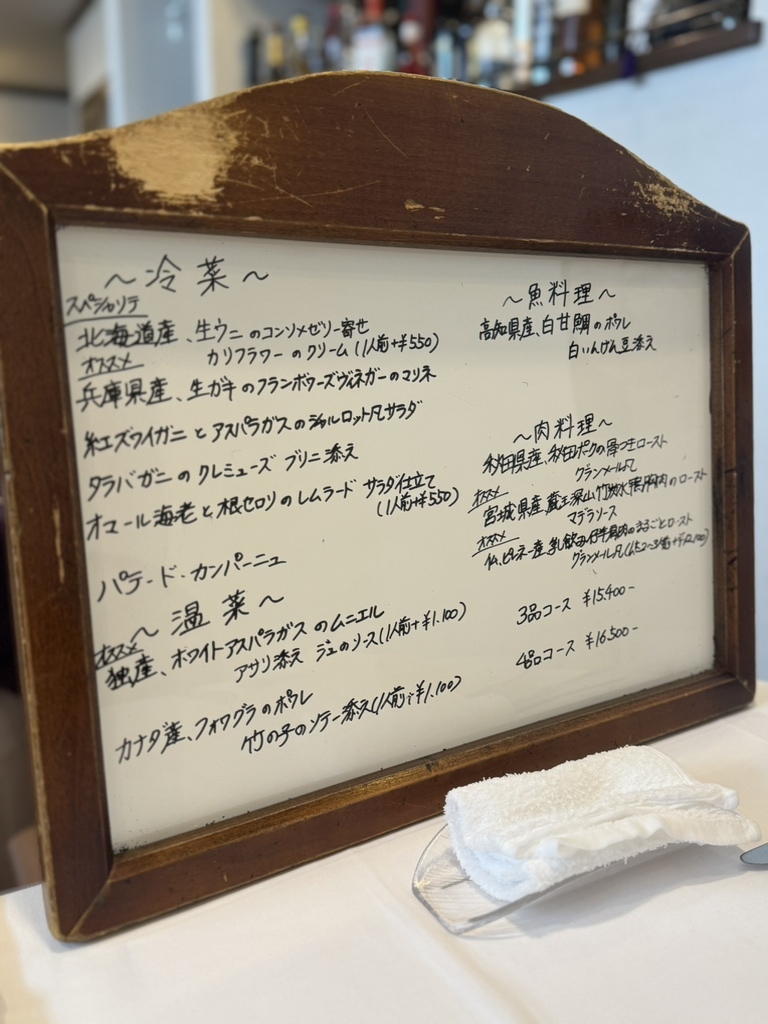 ～冷菜～
スペシャリテ
北海道産、生ウニのコンソメゼリー寄せ
カリフラワーのクリーム(1人前+¥550)
オススメ
兵庫県産、生ガキのフランボワーズヴィネガーのマリネ
紅ズワイガニとアスパラガスのシャルロット風サラダ
タラバガニのクレミューズ ブリニ添え
オマール海老と根セロリのレムラード サラダ仕立て
(1人前+¥550)
パテ・ド・カンパーニュ
～温菜～
オススメ
独産、ホワイトアスパラガスのムニエル
アサリ添え ジュのソース(1人前+¥1.100)
カナダ産、フォワグラのポワレ
竹の子のソテー添え(1人前+¥1.100)
～魚料理～
高知県産、白甘鯛のポワレ
白いんげん豆添え
～肉料理～
秋田県産、秋田ポークの骨つきロースト
グランメール風
オススメ
宮城県産、蔵王深山竹炭水鴨胸肉のロースト
マデラソース
オススメ
仏、ピレネー産、乳飲み仔羊肩肉のまるごとロースト
グランメール風
3品コース ¥15.400-
4品コース ¥16.500-